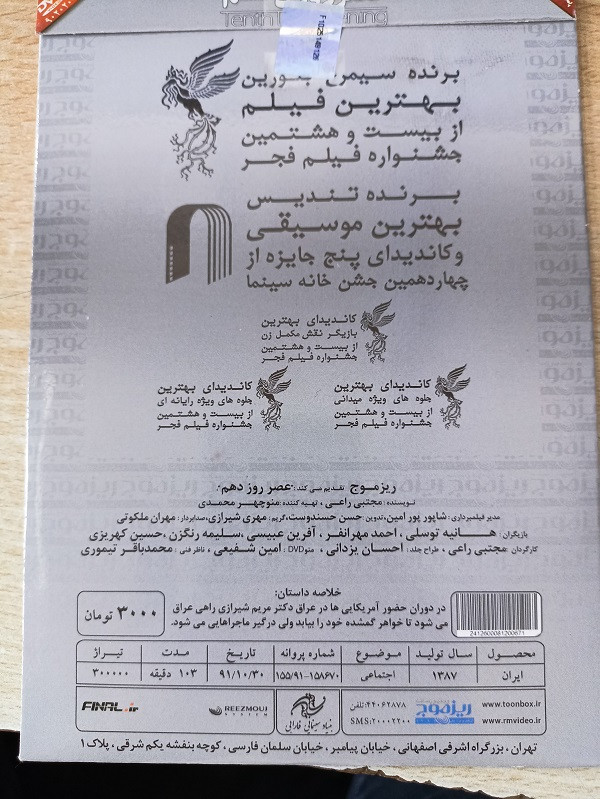 F 1025148128
برنده سیمرغ بلورین
بهترین فیلم
از بیست و هشتمین
جشنواره فیلم فجر
برنده تندیس
بهترین موسیقی
و کاندیدای پنج جایزه از
چهاردهمین جشن خانه سینما
کاندیدای بهترین
بازیگر نقش مکمل زن
از بیست و هشتمین
جشنواره فیلم فجر
کاندیدای بهترین
جلوه های ویژه میدانی
از بیست و هشتمین
جشنواره فیلم فجر
کاندیدای بهترین
جلوه های ویژه رایانه ای
از بیست و هشتمین
جشنواره فیلم فجر
ریزموج تقدیم می کند: «عصر روز دهم»
نویسنده: مجتبی راعی، تهیه کننده: منوچهر محمدی
مدیر فیلمبرداری: شاپور پور امین، تدوین: حسن حسندوست، گریم: مهری شیرازی، صدابردار: مهران ملکوتی
بازیگران: هانیه توسلی، احمد مهرانفر، آفرین عبیسی، سلیمه رنگزن، حسین کهریزی
کارگردان: مجتبی راعی، طراح جلد: احسان یزدانی، منوDVD: امین شفیعی، ناظر فنی: محمدباقر تیموری
خلاصه داستان:
در دوران حضور آمریکایی ها در عراق دکتر مریم شیرازی راهی عراق
می شود تا خواهر گمشده خود را بیابد ولی درگیر ماجراهایی می شود.
۳۰۰۰ تومان
2412600081200671
محصول سال تولید موضوع شماره پروانه تاریخ مدت تیراژ
ایران ۱۳۸۷ اجتماعی ۱۵۵/۹۱-۱۵۸۶۷۰ ۹۱/۱۰/۳۰ ۱۰۳ دقیقه ۳۰۰۰۰۰
www.toonbox.ir
www.rmvideo.ir
ریزموج
تلفن: ۴۴۰۶۲۸۷۸
SMS: ۲۰۰۰۲۲۰۰
بنیاد سینمایی فارابی
REEZMOUJ
SYSTEM
FINAL.ir
تهران، بزرگراه اشرفی اصفهانی، خیابان پیامبر، خیابان سلمان فارسی، کوچه بنفشه یکم شرقی، پلاک ۱